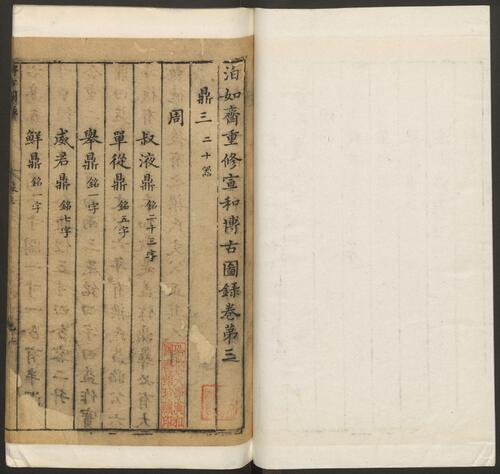 泊如齋重修宣和博古圖録卷第三
鼎三 二十器
周
叔液鼎 銘二十三字
單從鼎 銘五字
舉鼎 銘一字
威君鼎 銘七字
鮮鼎 銘一字